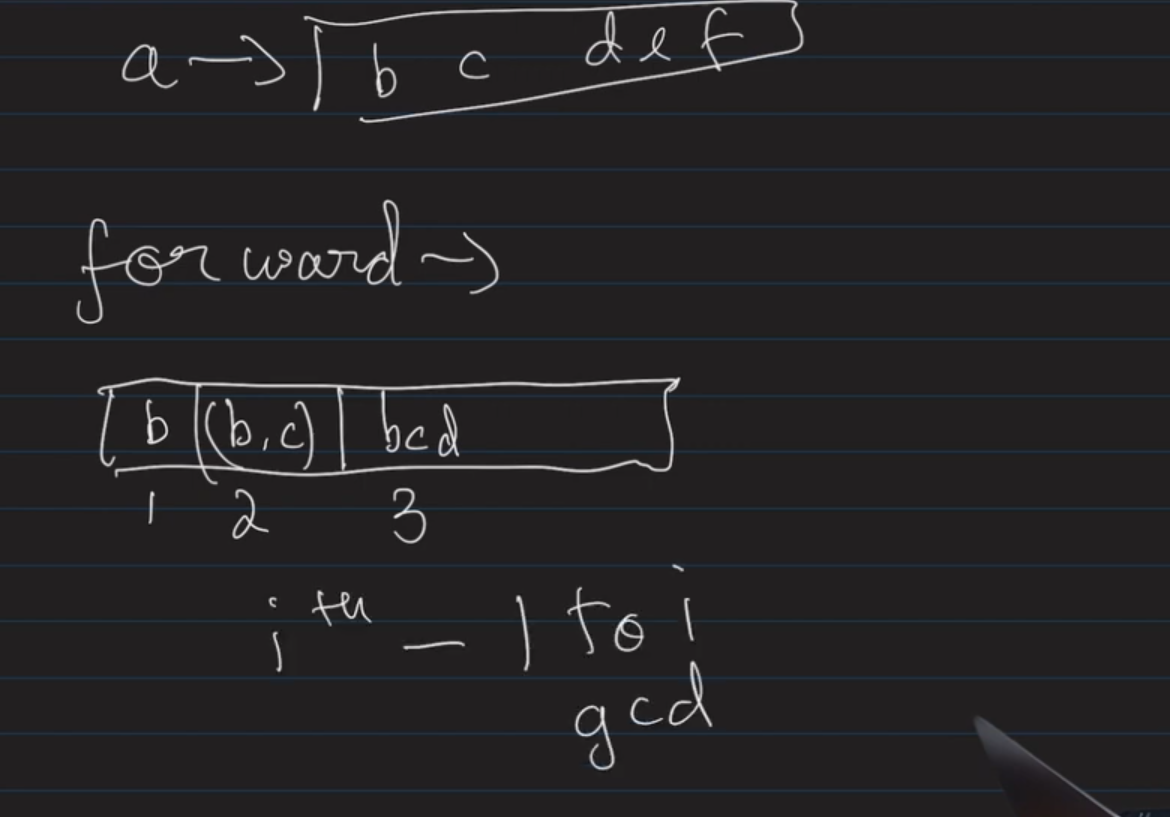 a → b c d e f
forward →
b (b,c) bcd
1 2 3
i th - 1 to i
gcd